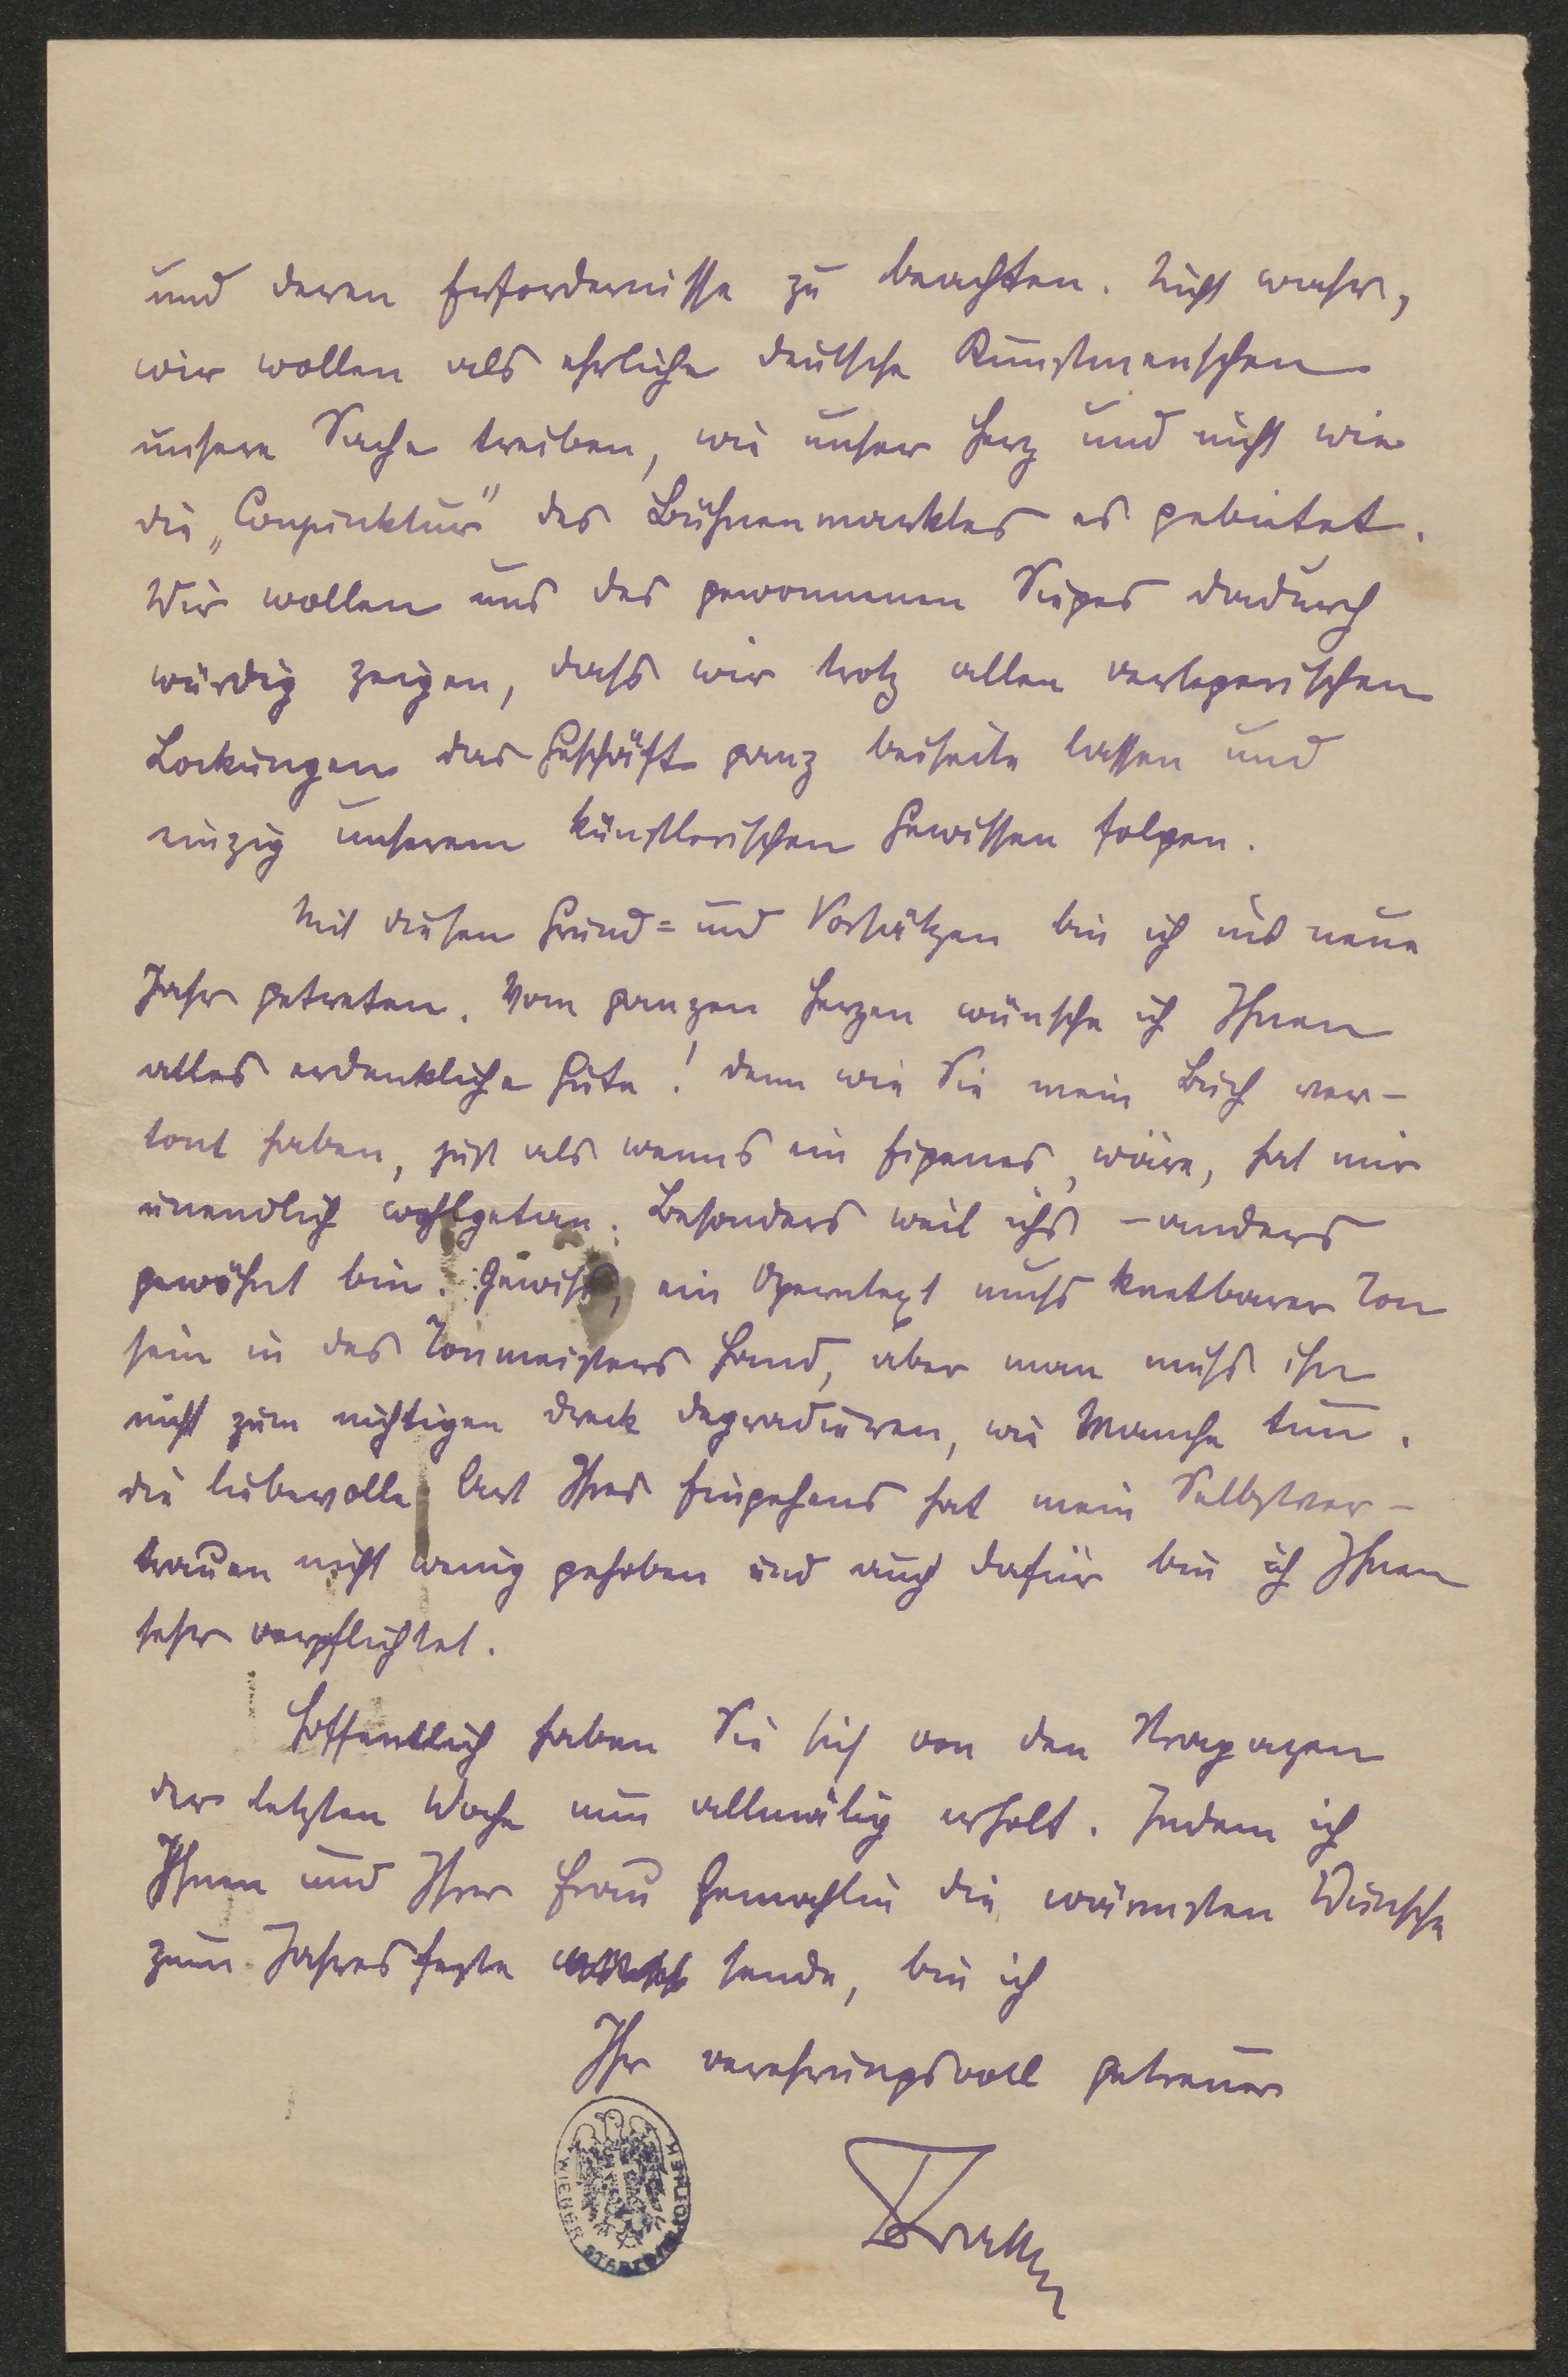 und deren Erfordernisse zu beachten. Nicht wahr,
wir wollen als ehrliche deutsche Kunstmenschen
unsere Sache treiben, wie unser Herz und nicht wie
die „Conjunktur" des Bühnenmarktes es gebietet.
Wir wollen uns des gewonnenen Sieges dadurch
würdig zeigen, dass wir trotz allen verlegerischen
Lockungen das Geschäft ganz beiseite lassen und
einzig unserem künstlerischen Gewissen folgen.
Mit diesen Grund= und Vorsätzen bin ich ins neue
Jahr getreten. Vom ganzen Herzen wünsche ich Ihnen
alles erdenkliche Gute! denn wie Sie mein Buch ver-
tont haben, just als wenns ein Eigenes wäre, hat mir
unendlich wohlgetan. Besonders weil ichs – anders
gewöhnt bin. Gewiss, ein Operntext muss knetbarer Ton
sein in des Tonmeisters Hand, aber man muss ihn
nicht zum nichtigen Dreck degradieren, wie Manche tun.
die liebevolle Art Ihres Eingehens hat mein Selbstver-
trauen nicht wenig gehoben und auch dafür bin ich Ihnen
sehr verpflichtet.
Hoffentlich haben Sie sich von den Strapazen
der letzten Woche nun allmälig erholt. Indem ich
Ihnen und Ihrer Frau Gemahlin die wärmsten Wünsche
zum Jahresfeste sende, bin ich
Ihr verehrungsvoll getreuer
WIENER STADTBIBLIOTHEK